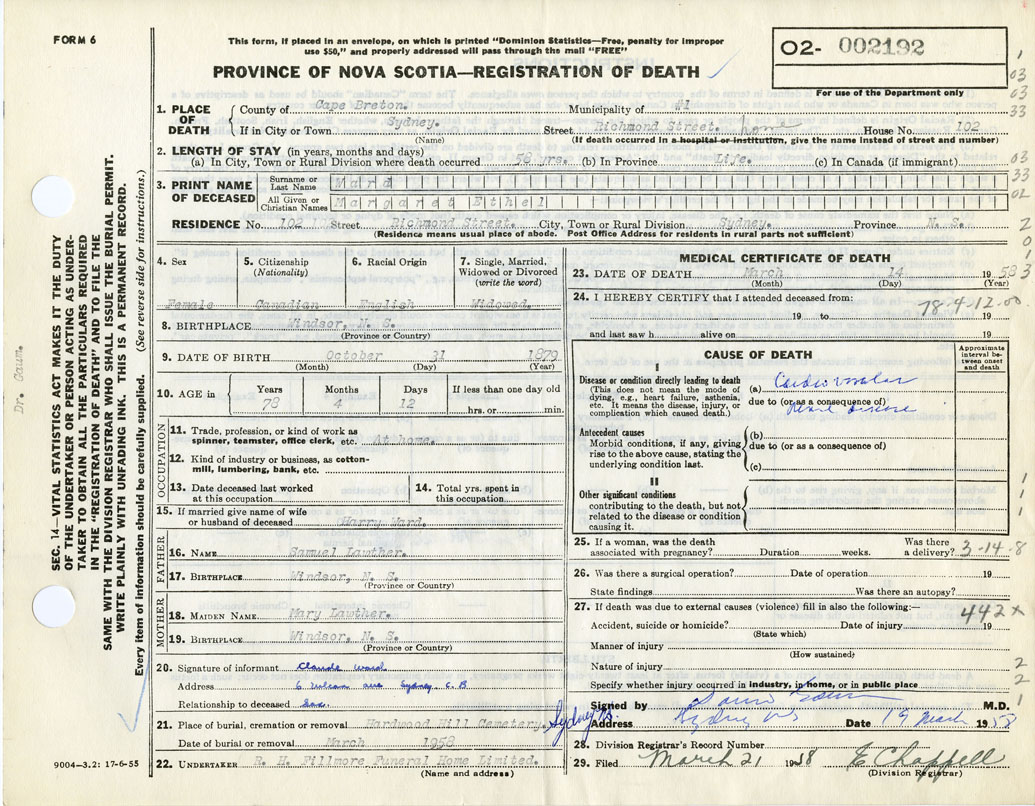 FORM 6
This form, if placed in an envelope, on which is printed "Dominion Statistics—Free, penalty for improper
use $50," and properly addressed will pass through the mail "FREE"
PROVINCE OF NOVA SCOTIA—REGISTRATION OF DEATH
O2- 002192
For use of the Department only
1. PLACE OF DEATH
County of Cape Breton. Municipality of #1
If in City or Town Sydney. Street Richmond Street. home House No. 102
(Name) (If death occurred in a hospital or institution, give the name instead of street and number)
2. LENGTH OF STAY (in years, months and days)
(a) In City, Town or Rural Division where death occurred 58 yrs. (b) In Province Life. (c) In Canada (if immigrant)
3. PRINT NAME OF DECEASED
Surname or Last Name Ward
All Given or Christian Names Margaret Ethel
RESIDENCE No. 102 Street Richmond Street. City, Town or Rural Division Sydney. Province N. S.
(Residence means usual place of abode. Post Office Address for residents in rural parts not sufficient)
4. Sex Female
5. Citizenship (Nationality) Canadian
6. Racial Origin English
7. Single, Married, Widowed or Divorced (write the word) Widowed.
8. BIRTHPLACE Windsor, N. S.
(Province or Country)
9. DATE OF BIRTH October 31 1879
(Month) (Day) (Year)
10. AGE in Years 78 Months 4 Days 12 If less than one day old hrs. or min.
OCCUPATION
11. Trade, profession, or kind of work as
spinner, teamster, office clerk, etc. At home.
12. Kind of industry or business, as cotton-
mill, lumbering, bank, etc.
13. Date deceased last worked
at this occupation
14. Total yrs. spent in
this occupation
15. If married give name of wife
or husband of deceased Harry Ward.
FATHER
16. NAME Samuel Lawther.
17. BIRTHPLACE Windsor, N. S.
(Province or Country)
MOTHER
18. MAIDEN NAME Mary Lawther.
19. BIRTHPLACE Windsor, N. S.
(Province or Country)
20. Signature of informant Claude Ward
Address 6 ave Sydney C.B
Relationship to deceased Son.
21. Place of burial, cremation or removal Hardwood Hill Cemetery. Sydney N.S.
Date of burial or removal March 1958
22. UNDERTAKER R. H. Fillmore Funeral Home Limited.
(Name and address)
MEDICAL CERTIFICATE OF DEATH
23. DATE OF DEATH March 14 1958 3
(Month) (Day) (Year)
24. I HEREBY CERTIFY that I attended deceased from:
78-4-12.00
19 to 19
and last saw h alive on 19
CAUSE OF DEATH
Approximate interval between onset and death
I
Disease or condition directly leading to death
(This does not mean the mode of
dying, e.g., heart failure, asthenia,
etc. It means the disease, injury, or
complication which caused death.)
(a) Cardiovascular
due to (or as a consequence of)
Renal disease
Antecedent causes
Morbid conditions, if any, giving
rise to the above cause, stating the
underlying condition last.
(b)
due to (or as a consequence of)
(c)
II
Other significant conditions
contributing to the death, but not
related to the disease or condition
causing it.
25. If a woman, was the death
associated with pregnancy? Duration weeks. Was there
a delivery? 3-14-8
26. Was there a surgical operation? Date of operation 19
State findings Was there an autopsy?
27. If death was due to external causes (violence) fill in also the following:—
442X
Accident, suicide or homicide? Date of injury 19
(State which)
Manner of injury
(How sustained)
Nature of injury
Specify whether injury occurred in industry, in home, or in public place
Signed by M.D.
Address Sydney NS Date 19 March 1958
28. Division Registrar's Record Number
29. Filed March 21 1958 E Chappell
(Division Registrar)
9004-3.2: 17-6-55
SEC. 14—VITAL STATISTICS ACT MAKES IT THE DUTY
OF THE UNDERTAKER OR PERSON ACTING AS UNDER-
TAKER TO OBTAIN ALL THE PARTICULARS REQUIRED
IN THE "REGISTRATION OF DEATH" AND TO FILE THE
SAME WITH THE DIVISION REGISTRAR WHO SHALL ISSUE THE BURIAL PERMIT.
WRITE PLAINLY WITH UNFADING INK. THIS IS A PERMANENT RECORD.
Every item of information should be carefully supplied. (See reverse side for instructions.)
Dr. Gaum.
1
03
03
33
03
33
02
2
0
1
3
1
1
1
2
2
1